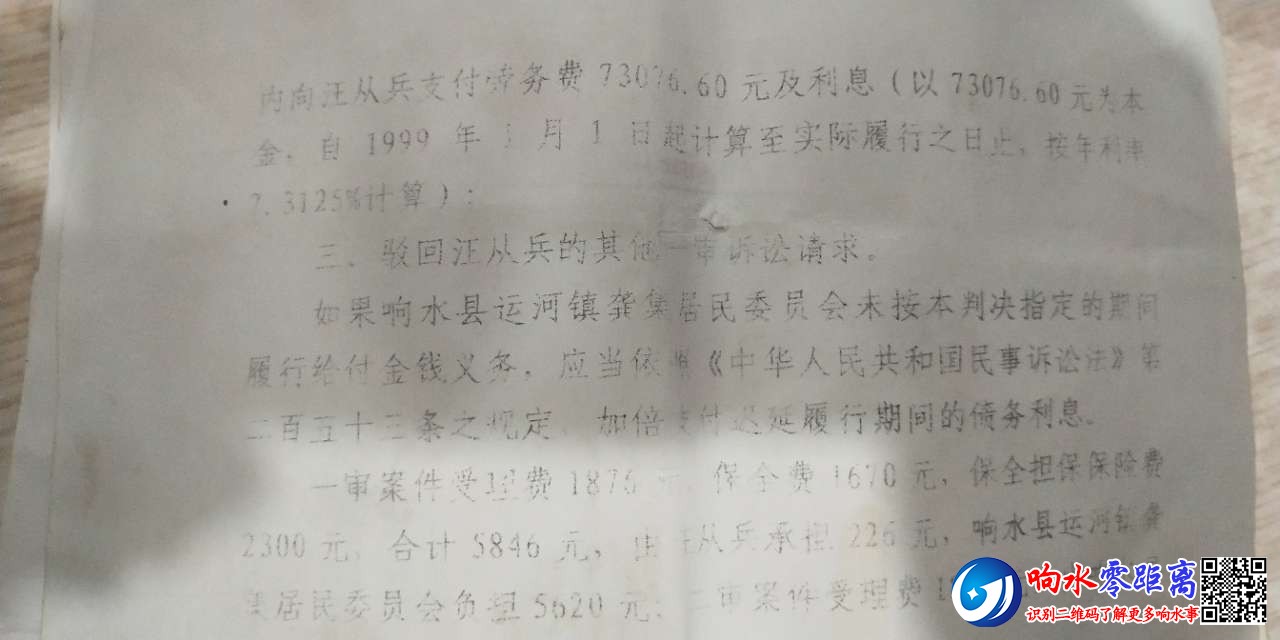 内向汪从兵支付劳务费73076.60元及利息（以73076.60元为本
金，自1999年1月1日起计算至实际履行之日止，按年利率
7.3125%计算）；
三、驳回汪从兵的其他一审诉讼请求。
如果响水县运河镇龚集居民委员会未按本判决指定的期间
履行给付金钱义务，应当依照《中华人民共和国民事诉讼法》第
二百五十三条之规定，加倍支付迟延履行期间的债务利息。
一审案件受理费1876元，保全费1670元，保全担保保险费
2300元，合计5846元，由汪从兵承担226元，响水县运河镇龚
集居民委员会负担5620元。二审案件受理费
响水零距离
识别二维码了解更多响水事